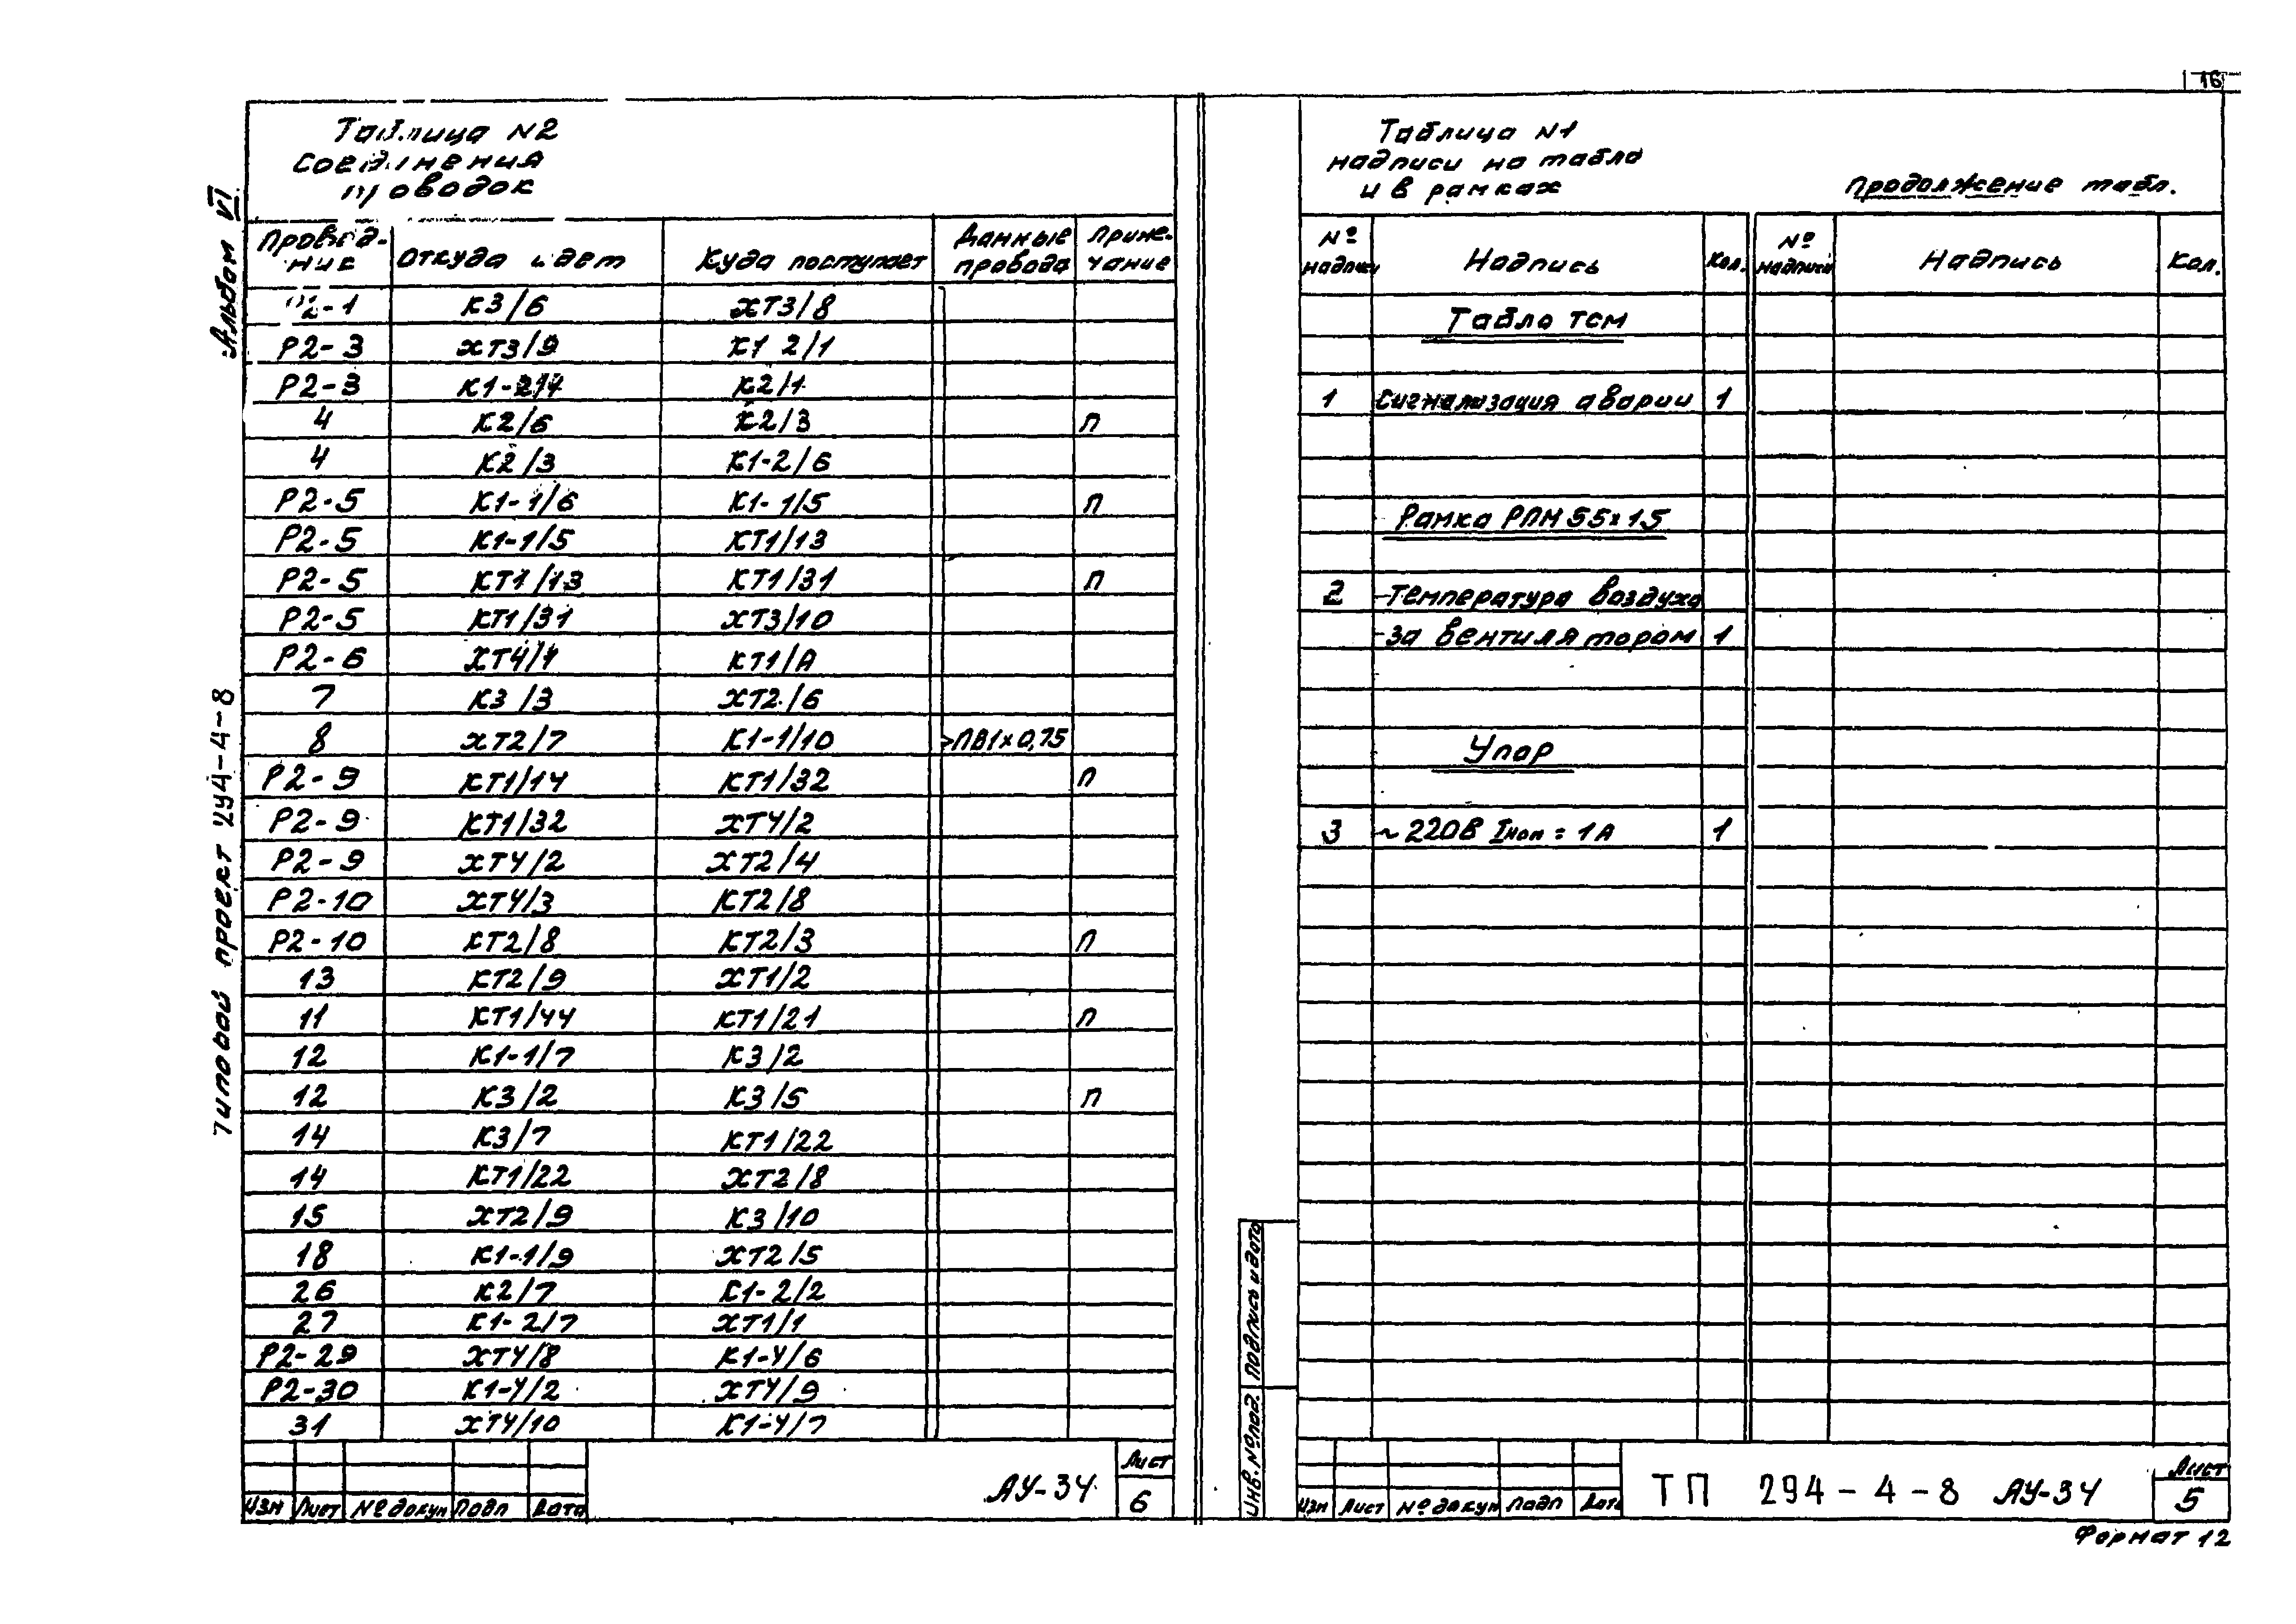 16
Альбом VI
Типовой проект 294-4-8
Таблица N2
Соединения
проводок
Провод-ник | Откуда идет | Куда поступает | Данные провода | Приме-чание
Р2-1 | К3/6 | ХТ3/8
Р2-3 | ХТ3/9 | К1 2/1
Р2-3 | К1-2/4 | К2/1
4 | К2/6 | К2/3 | П
4 | К2/3 | К1-2/6
Р2-5 | К1-1/6 | К1-1/5 | П
Р2-5 | К1-1/5 | КТ1/13
Р2-5 | КТ1/13 | КТ1/31 | П
Р2-5 | КТ1/31 | ХТ3/10
Р2-6 | ХТ4/1 | КТ1/А
7 | К3/3 | ХТ2/6
8 | ХТ2/7 | К1-1/10 | ПВ1х0,75
Р2-9 | КТ1/14 | КТ1/32 | П
Р2-9 | КТ1/32 | ХТ4/2
Р2-9 | ХТ4/2 | ХТ2/4
Р2-10 | ХТ4/3 | КТ2/8
Р2-10 | КТ2/8 | КТ2/3 | П
13 | КТ2/9 | ХТ1/2
11 | КТ1/44 | КТ1/21 | П
12 | К1-1/7 | К3/2
12 | К3/2 | К3/5 | П
14 | К3/7 | КТ1/22
14 | КТ1/22 | ХТ2/8
15 | ХТ2/9 | К3/10
18 | К1-1/9 | ХТ2/5
26 | К2/7 | К1-2/2
27 | К1-2/7 | ХТ1/1
Р2-29 | ХТ4/8 | К1-4/6
Р2-30 | К1-4/2 | ХТ4/9
31 | ХТ4/10 | К1-4/7
Изм | Лист | № докум | Подп | Дата
АУ-34
Лист
6
Таблица N1
надписи на табло
и в рамках
Продолжение табл.
№ надписи | Надпись | Кол. | № надписи | Надпись | Кол.
Табло ТСМ
1 | Сигнализация аварии | 1
Рамка РПМ 55х15
2 | Температура воздуха
за вентилятором | 1
Упор
3 | ~220В Iноп = 1А | 1
Подпись и дата
Инв. № подл.
Изм | Лист | № докум | Подп | Дата
ТП 294-4-8 АУ-34
Лист
5
Формат 12